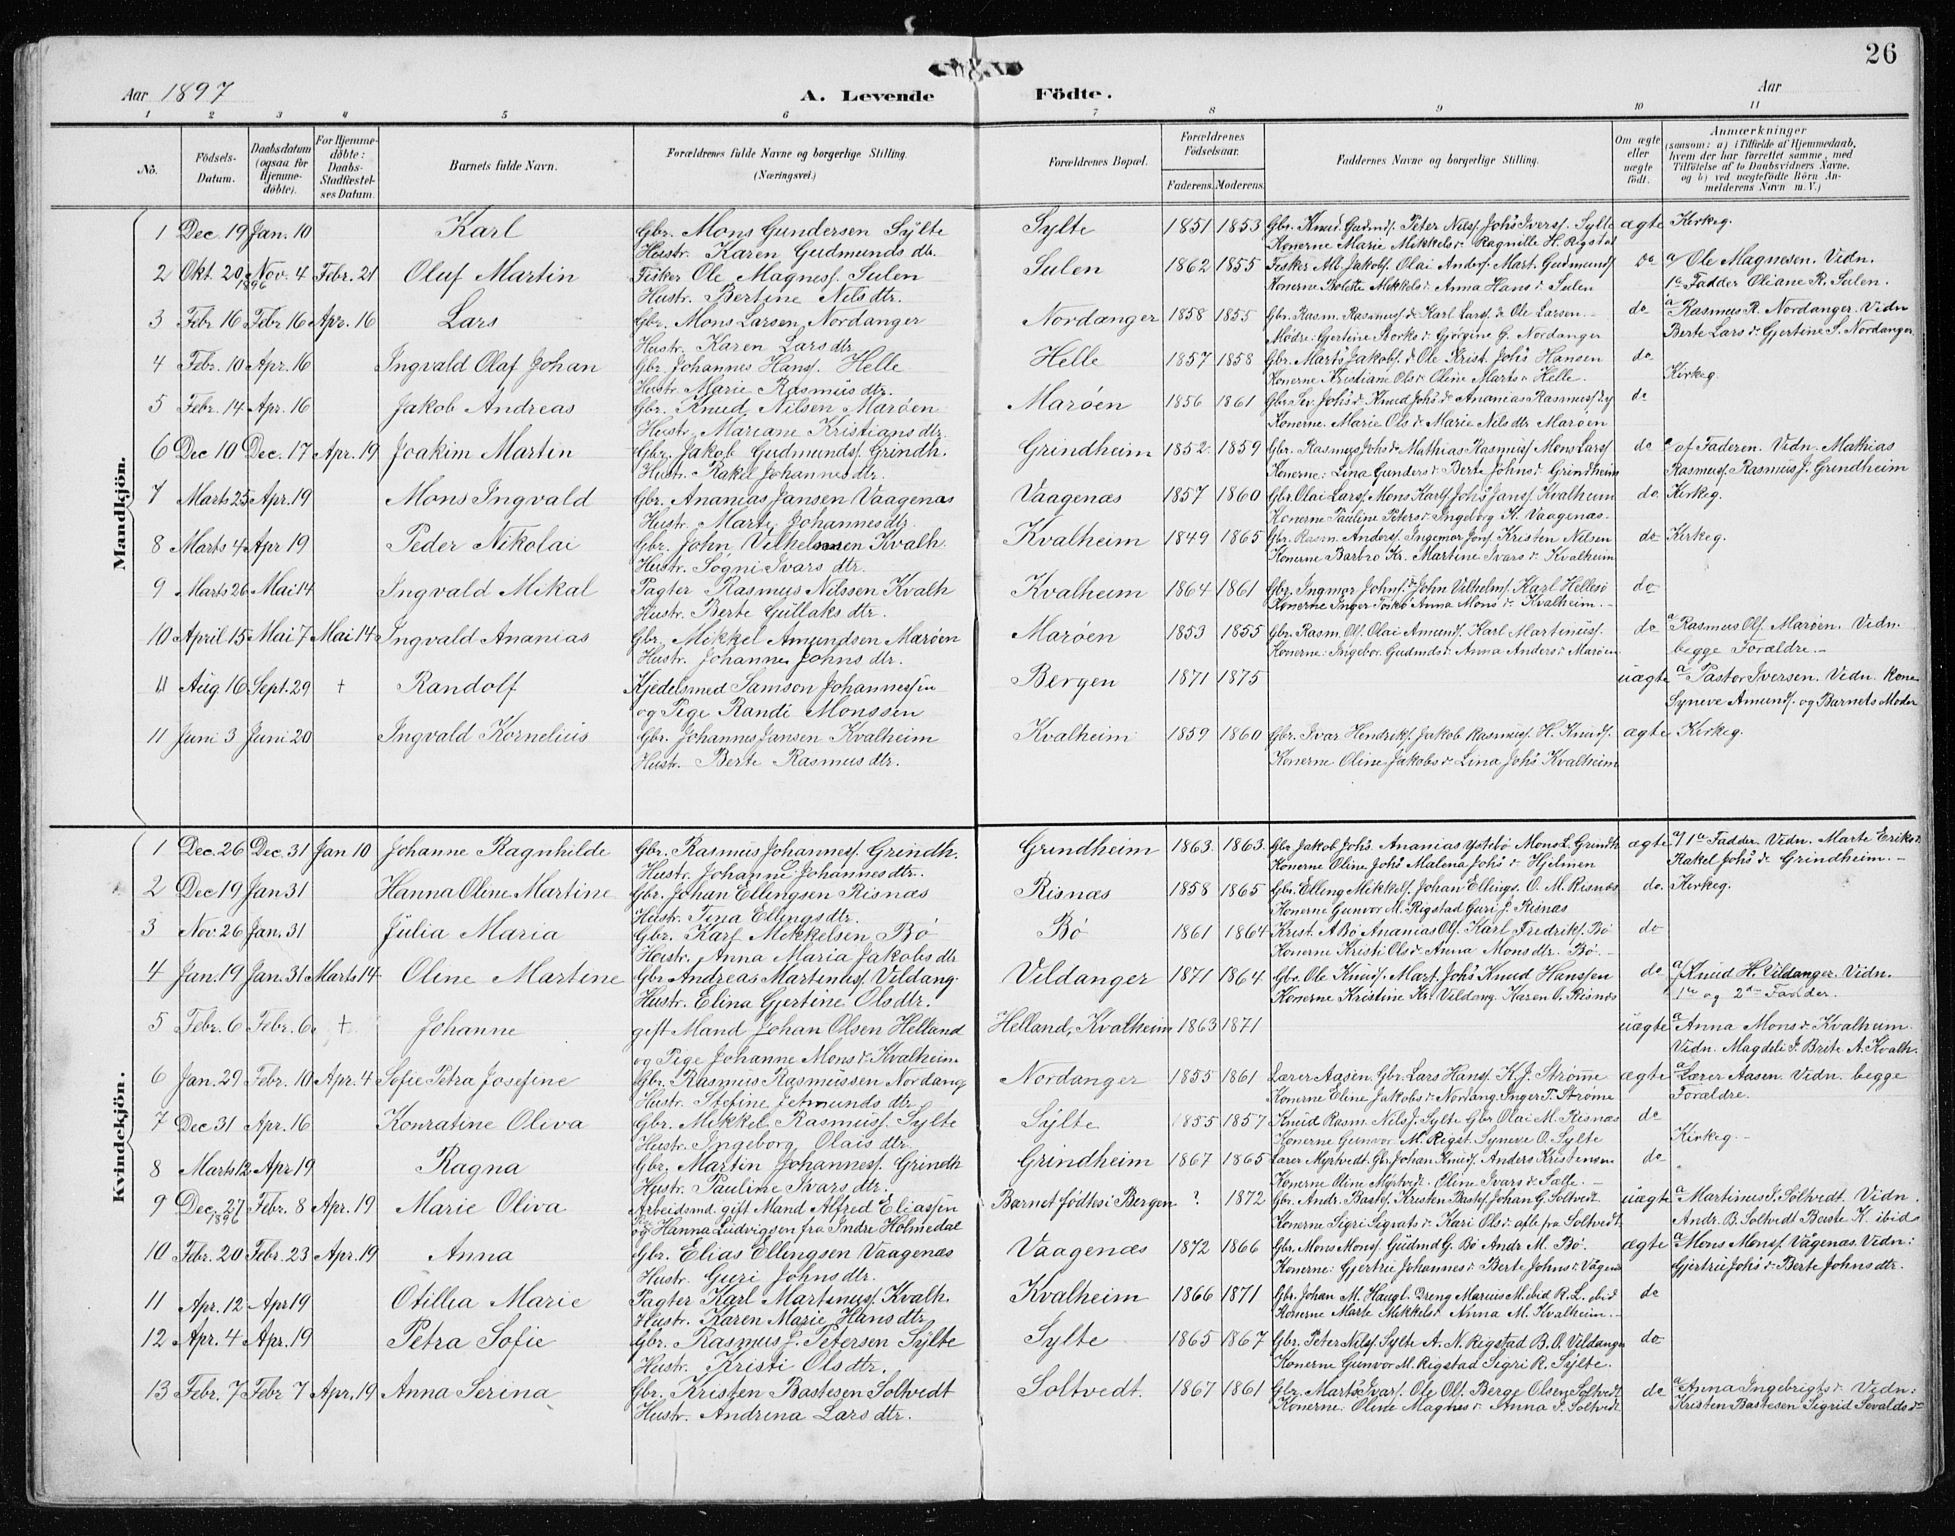 26
Aar 1897
A. Levende Födte.
Aar
1 2 3 4 5 6 7 8 9 10 11
No. Födsels-Datum. Daabsdatum (ogsaa for Hjemmedöbte). For Hjemmedöbte: Daabs-Stadfæstelses Datum. Barnets fulde Navn. Forældrenes fulde Navne og borgerlige Stilling. (Næringsvei.) Forældrenes Bopæl. Forældrenes Födselsaar. Faderens. Moderens. Faddernes Navne og borgerlige Stilling. Om ægte eller uægte födt. Anmærkninger (saasom: a) i Tilfælde af Hjemmedaab, hvem der har forrettet samme, med Tilföielse af to Daabsvidners Navne, og b) ved uægtefödte Börn Anmelderens Navn m.V.)
Mandkjön.
1 Dec. 19 Jan. 10 Karl Gbr. Mons Gundersen Sylte Sylte 1851 1853 Gbr. Knud Gudmds. Peter Nilss. Johs Iverss. Sylte ægte Kirkeg.
Hustr. Karen Gudmunds dtr. Konerne Marie Mikkelsd. Ragnille H. Rigstad
2 Okt. 20 1896 Nov. 4 Febr. 21 Oluf Martin Fisker Ole Magness. Sulen Sulen 1862 1855 Fisker Alb. Jakobs. Olai Anders. Mart. Gudmunds. do a/ Ole Magnesen. Vidn.
Hustr. Bertine Nils dtr. Konerne Bolette Mikkelsd. Anna Hansd. Sulen 1e Fadder Oliane R. Sulen.
3 Febr 16 Febr 16 Apr. 16 Lars Gbr. Mons Larsen Nordanger Nordanger 1858 1855 Gbr. Rasm. Rasmuss. Karl Larss. Ole Larsen. do a Rasmus R. Nordanger. Vidn
Hustr. Karen Lars dtr. Mødre: Gertine Storksd. Gjørgine G. Nordanger Berte Larsd. Gjertine S. Nordanger.
4 Febr. 10 Apr. 16 Ingvald Olaf Johan Gbr. Johannes Hanss. Helle Helle 1857 1858 Gbr. Marts Jakobs. Ole Krist. Johs Hansen do Kirkeg.
Hustr. Marie Rasmus dtr. Konerne Kristiane Olsd. Oline Martsd. Helle.
5 Febr. 14 Apr. 16 Jakob Andreas Gbr. Knud Nilsen Marøen Marøen 1856 1861 Gbr. Johs Knud Johs Ananias Rasmuss. do
Hustr. Mariane Kristians dtr. Konerne. Marie Olsd. Marie Nils dtr Marøen
6 Dec 10 Dec. 17 Apr. 19 Joakim Martin Gbr. Jakob Gudmunds. Grindh. Grindheim 1852 1859 Gbr. Rasmus Johs Mathias Rasmuss. Mons Larss. do af Faderen. Vidn. Mathias
Hustr. Rakel Johannes dtr. Konerne: Lina Gundersd. Berte Johnsd. Grindheim Rasmuss. Rasmus J. Grindheim
7 Marts 25 Apr. 19 Mons Ingvald Gbr. Ananias Jansen Vaagenæs Vaagenæs 1857 1860 Gbr. Olai Larss. Mons Karls. Johs Janss. Kvalheim do Kirkeg.
Hustr. Marte Johannes dtr. Konerne Pauline Petersd. Ingeborg K. Vaagenæs.
8 Marts 4 Apr 19 Peder Nikolai Gbr. John Vilhelmsen Kvalh. Kvalheim 1849 1865 Gbr. Rasm. Anders. Ingemor Jons. Kristen Nelsen do Kirkeg.
Hustr. Sogni Ivars dtr. Konerne Barbro Kr. Martine Ivarsd. Kvalheim
9 Marts 26 Mai 14 Ingvald Mikal Pagter Rasmus Nilssen Kvalh Kvalheim 1864 1861 Gbr. Ingmor Johns. John Vilhelms. Karl Hellesö do
Hustr. Berte Gullaks dtr. Konerne Inger Anna Monsd. Kvalheim.
10 April 15 Mai 7 Mai 14 Ingvald Ananias Gbr. Mikkel Amundsen Marøen Marøen 1853 1855 Gbr. Rasm. Ols. Olai Amunds. Karl Martinuss. do a Rasmus Ols. Marøen. Vidn.
Hustr. Johanne Johns dtr. Konerne: Ingebor Gudmdsd. Anna Andersd. Marøen begge Forældre.
11 Aug 16 Sept. 29 + Randolf Kjedelsmed Samson Johannessen Bergen 1871 1875 uægte a Pastor Iversen. Vidn. Kone
og Pige Randi Monssen Syneve Amunds. og Barnets Moder
11 Juni 3 Juni 20 Ingvald Kornelius Gbr. Johannes Jansen Kvalheim Kvalheim 1859 1860 Gbr. Ivar Hendriks. Jakob Rasmuss. H. Knuds. ægte Kirkeg.
Hustr. Berte Rasmus dtr. Konerne Oline Jakobsd. Lina Johs Kvalheim
Kvindekjön.
1 Dec. 26 Dec. 31 Jan 10 Johanne Ragnhilde Gbr. Rasmus Johanness. Grindh. Grindheim 1863 1863 Gbr Jakob Johs. Ananias Ystebö Mons L. Grindh ægte a/ 1a Fadder. Vidn. Marte Eriksd.
Hustr. Johanne Johannes dtr. Konerne Oline Johs Malena Johs d. Hjelmen Rakel Johs d. Grindheim.
2 Dec 19 Jan 31 Hanna Olene Martine Gbr. Johan Ellingsen Risnæs Risnæs 1858 1865 Gbr. Elling Mikkels. Johan Ellings. O. M. Risnæs do. Kirkeg.
Hustr. Tina Ellings dtr. Konerne Gunvor M. Rigstad Guri J. Risnæs
3 Nov. 26 Jan. 31 Julia Maria Gbr. Karl Mikkelsen Bö Bö 1861 1864 Krist. A Bö Ananias Ols. Karl Fredriks. Bö do
Hustr. Anna Maria Jakobs dtr Konerne Kristi Olsd. Anna Mons dtr. Bö.
4 Jan. 19 Jan. 31 Marts 14 Oline Martine Gbr Andreas Martinuss. Vildang. Vildanger 1871 1864 Gbr. Ole Knuds. Johs Knud Hanssen do a/ Knud H. Vildanger. Vidn.
Hustr. Elina Gjertine Ols dtr. Konerne Kristine Kr. Vildang. Karen O. Risnæs 1ste og 2den Fadder.
5 Febr. 6 Febr. 6 + Johanne gift Mand Johan Olsen Helland Helland, Kvalheim 1863 1871 uægte a Anna Monsd. Kvalheim.
og Pige Johanne Monsd. Kvalheim Vidn. Magdeli J. Brite A. Kvalh.
6 Jan. 29 Febr. 10 Apr. 4 Sofie Petra Josefine Gbr. Rasmus Rasmussen Nordang Nordanger 1855 1861 Lærer Aasen. Gbr. Lars Hans. K. J. Strømme ægte a Lærer Aasen. Vidn. begge
Hustr. Stefine Amunds dtr. Konerne Eline Jakobsd. Nordang. Inger T. Strøme Forældre.
7 Dec 31 Apr. 16 Konratine Oliva Gbr. Mikkel Rasmuss. Sylte Sylte 1855 1857 Knud Rasm. Nils J. Sylte Gbr Olai M. Risnæs do Kirkeg.
Hustr. Ingeborg Olais dtr. Konerne Gunvor M. Rigst. Syneve O. Sylte
8 Marts 12 Apr 19 Ragna Gbr. Martin Johanness. Grindh Grindheim 1867 1865 Lærer Myrtvedt. Gbr. Johan Knuds. Anders Kristensen do
Hustr. Pauline Ivars dtr. Konerne Oline Myrtvedt. Oline Ivarsd.
9 Dec. 27 1896 Febr. 8 Apr. 19 Marie Oliva Arbeidsmd. gift Mand Alfred Eliassen Barnet fødtes i Bergen ? 1872 Gbr. Andr. Bastes. Kristen Bastes. Johan G. Soltvedt uægte a Martinus J. Soltvedt. Vidn.
og Hanna Ludvigsen fra Indre Holmedal Konerne Sigri Sigvatsd. Kari Olsd. alle fra Soltvedt Andr. B. Soltvedt Berte K. ibid
10 Febr. 20 Febr. 23 Apr. 19 Anna Gbr. Elias Ellingsen Vaagenæs Vaagenæs 1872 1866 Gbr. Mons Mons. Gudmd G. Bö Andr M. Bö. ægte a Mons Mons. Vågenæs. Vidn:
Hustr. Guri Johns dtr. Konerne: Gjertrui Johannesd. Berte Johnsd. Vågenæs Gjertrui Johs d. Berte Johns dtr.
11 Apr. 12 Apr 19 Otillia Marie Pagter Karl Martinuss. Kvalh. Kvalheim 1866 1871 Gbr. Johan M. Haugl. Dreng Marius M. ibid R. L. ibid do
Hustr. Karen Marie Hans dtr Konerne Marte Mikkelsd. Anna M. Kvalheim.
12 Apr. 4 Apr. 19 Petra Sofie Gbr. Rasmus J. Petersen Sylte Sylte 1865 1867 Gbr. Peter Nils. Sylte A. N. Rigstad B. O. Vildanger do
Hustr. Kristi Ols dtr. Konerne Gunvor M. Rigstad Sigri R. Sylte.
13 Febr. 7 Febr 7 Apr. 19 Anna Serina Gbr. Kristen Bastesen Soltvedt Soltvedt. 1867 1861 Gbr. Marts Ivars. Ole Ols. Berge Olsen Soltvedt do a Anna Ingebrigtsd. Vidn:
Hustr. Andrina Lars dtr. Konerne: Oline Magnesd. Anna S. Soltvedt Kristen Bastesen Sigrid Sevaldsd.